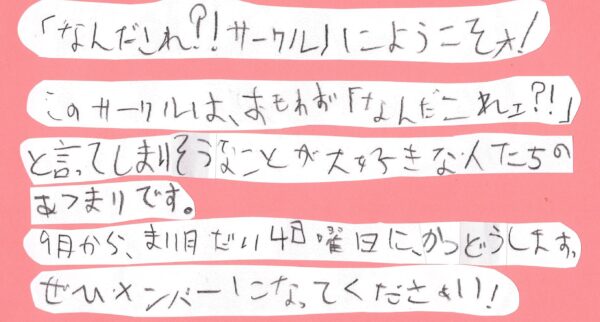 「なんだこれ?!サークル」にようこそォ!
このサークルは、おもわず「なんだこれェ?!」
と言ってしまいそうなことが大好きな人たちの
あつまりです。
9月から、まい月だい4日曜日に、かつどうします。
ぜひメンバーになってください!